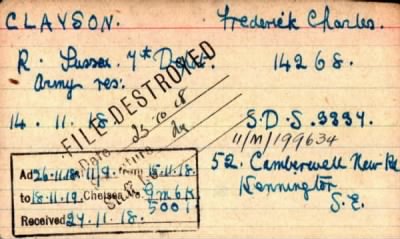 CLAYSON. Frederick Charles.
R. Sussex. 7th Depot. 14268.
Army res:
FILE DESTROYED
Date 23 10 28
Signature
14.11.18. S.D.S. 3334.
11/M/199634
52. Camberwell New Rd
Kennington
S.E.
Ad 26.11.18. 11/9. from 15.11.18.
to 18.11.19. Chelsea No. 9m6R
5001
Received 27.11.18.